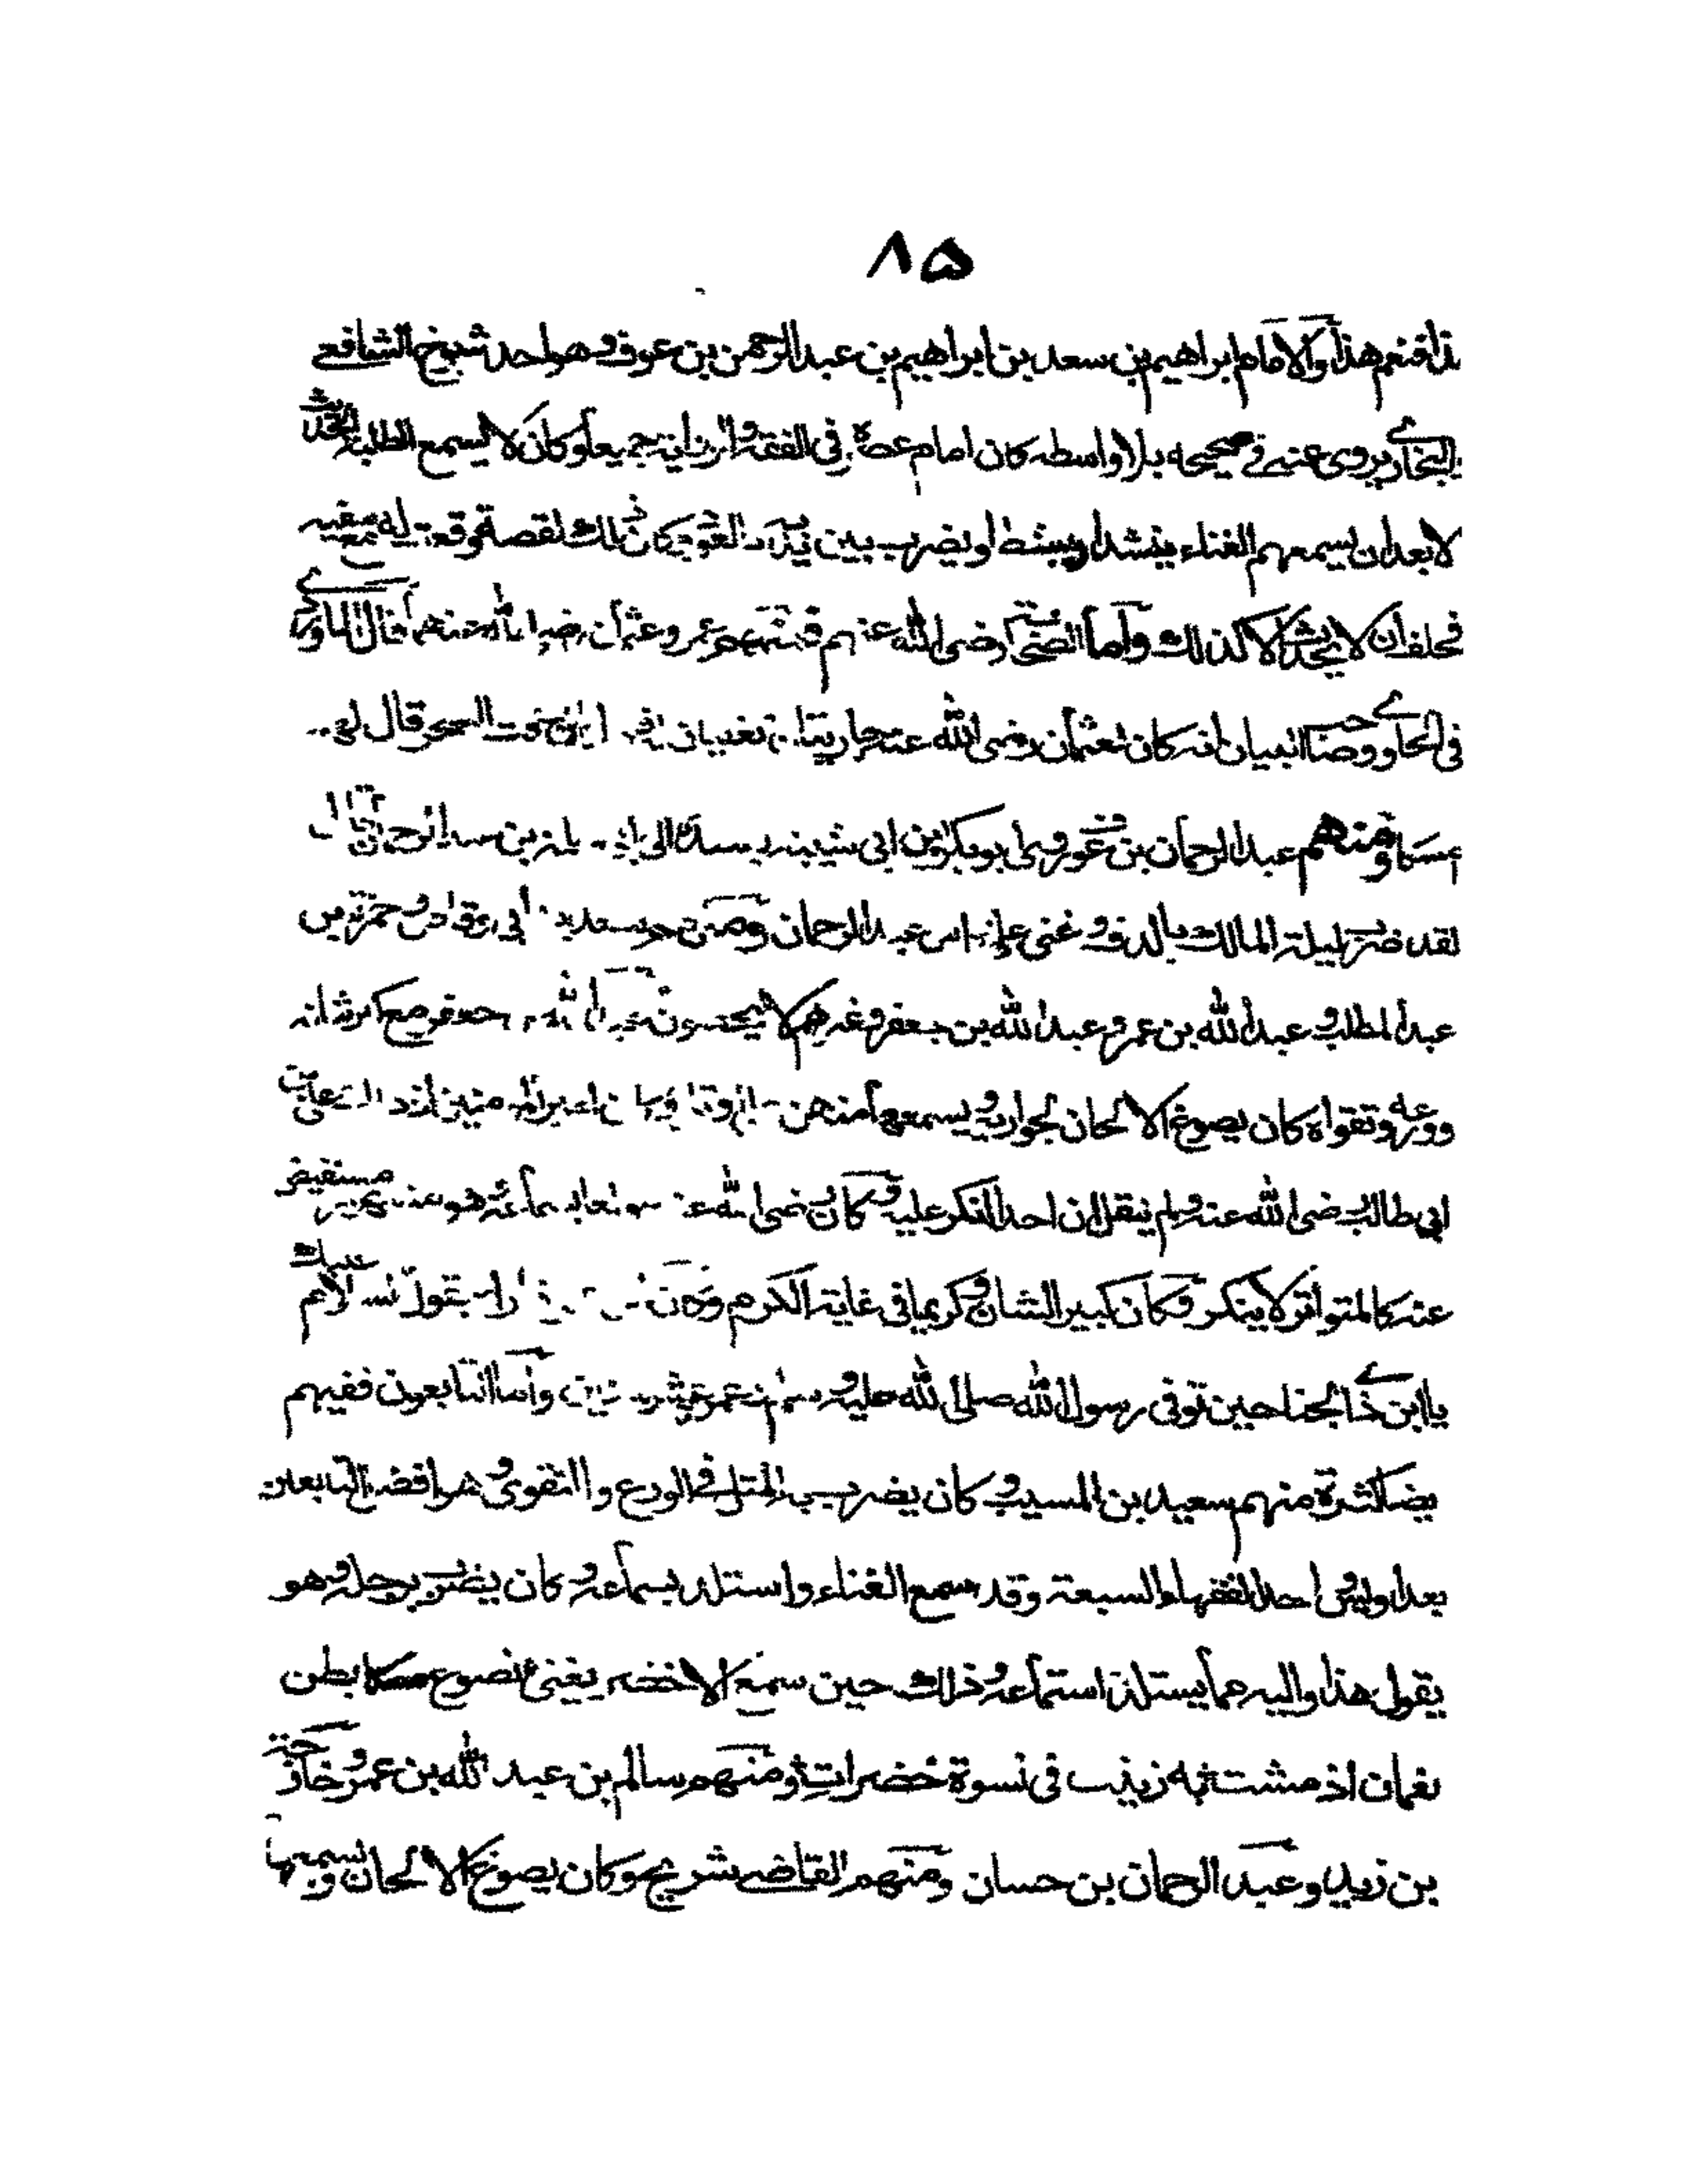 ٨٥
هذا والامام ابراهيم بن سعد بن ابراهيم بن عبد الرحمن بن عوف وهو احد شيوخ الشافعي
البخاري يروى عنه في صحيحه بلا واسطه كان امام عصره في الفقه والرواية جميعاً وكان لا يسمع الطلبة الحديث
الا بعد ان يسمعهم الغناء ينشد او يبسط او يضرب بين يديه العود وكان ذلك لقصة وقعت له مع سفيه
فحلف ان لا يحدث الا كذلك وأما الصحابة رضى الله عنهم فمنهم عمر وعثمان رضى الله عنهما قال الماوردي
في الحاوي وصاحب البيان انه كان لعثمان رضى الله عنه جاريتان تغنيان فاذا كان وقت السحر قال لهما
امسكا ومنهم عبد الرحمان بن عوف روى ابو بكر بن ابي شيبة بسنده الى
لقد ضرب ليلة المالك بالدف وغنى على راس عبد الرحمان ومنهم سعد بن ابي وقاص وحمزة بن
عبد المطلب وعبد الله بن عمر وعبد الله بن جعفر وغيرهم لا يحصون عبد الله بن جعفر مع كبر شانه
وورعه وتقواه كان يصوغ الالحان لجواريه ويسمعها منهن على اوتاره في زمان امير المؤمنين على بن
ابي طالب رضى الله عنه ولم ينقل ان احدا انكر عليه وكان رضى الله عنه مولعا بسماعه هو عند مستفيض
عنه كالمتواتر لا ينكر وكان كبير الشان وكريما في غاية الكرم وكان يقول السلام عليك
يا ابن ذي الجناحين توفى رسول الله صلى الله عليه وسلم عن عمر عشر سنين وأما التابعون ففيهم
ايضا كثرة منهم سعيد بن المسيب وكان يضرب به المثل في الورع والتقوى وهو افضل التابعين
بعد اويس احد الفقهاء السبعة وقد سمع الغناء واستلذ بسماعه وكان يضرب برجله وهو
يقول هذا والله مما يستلذ استماعه وذلك حين سمع الاخضر يغنى تضوع مسكا بطن
نعمان اذ مشت به زينب في نسوة خضرات ومنهم سالم بن عبد الله بن عمر وخارجة
بن زيد وعبد الرحمان بن حسان ومنهم القاضي شريح وكان يصوغ الالحان ويسمعها